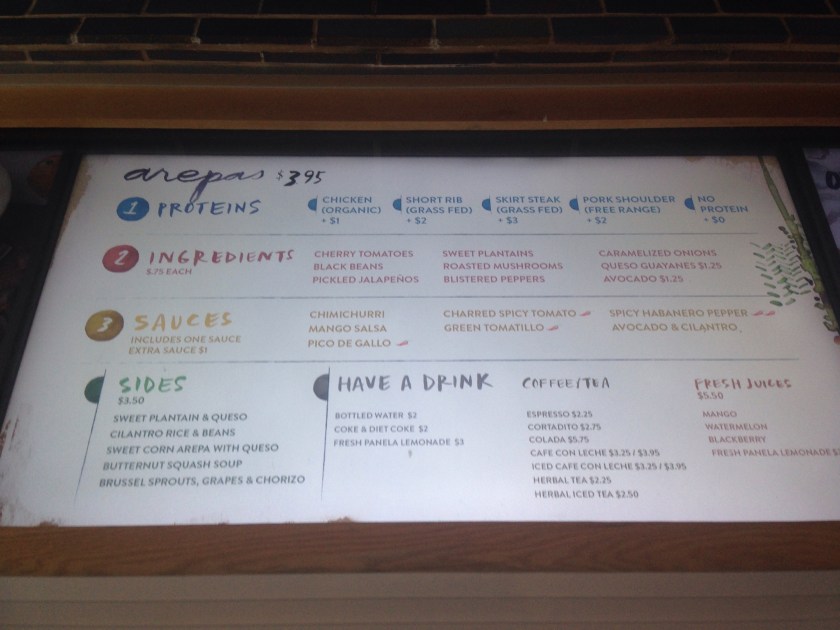 arepas $3.95
1 PROTEINS
CHICKEN (ORGANIC) + $1
SHORT RIB (GRASS FED) + $2
SKIRT STEAK (GRASS FED) + $3
PORK SHOULDER (FREE RANGE) + $2
NO PROTEIN + $0
2 INGREDIENTS
$.75 EACH
CHERRY TOMATOES
BLACK BEANS
PICKLED JALAPEÑOS
SWEET PLANTAINS
ROASTED MUSHROOMS
BLISTERED PEPPERS
CARAMELIZED ONIONS
QUESO GUAYANES $1.25
AVOCADO $1.25
3 SAUCES
INCLUDES ONE SAUCE
EXTRA SAUCE $1
CHIMICHURRI
MANGO SALSA
PICO DE GALLO
CHARRED SPICY TOMATO
GREEN TOMATILLO
SPICY HABANERO PEPPER
AVOCADO & CILANTRO
SIDES
$3.50
SWEET PLANTAIN & QUESO
CILANTRO RICE & BEANS
SWEET CORN AREPA WITH QUESO
BUTTERNUT SQUASH SOUP
BRUSSEL SPROUTS, GRAPES & CHORIZO
HAVE A DRINK
BOTTLED WATER $2
COKE & DIET COKE $2
FRESH PANELA LEMONADE $3
COFFEE/TEA
ESPRESSO $2.25
CORTADITO $2.75
COLADA $5.75
CAFE CON LECHE $3.25 / $3.95
ICED CAFE CON LECHE $3.25 / $3.95
HERBAL TEA $2.25
HERBAL ICED TEA $2.50
FRESH JUICES
$5.50
MANGO
WATERMELON
BLACKBERRY
FRESH PANELA LEMONADE